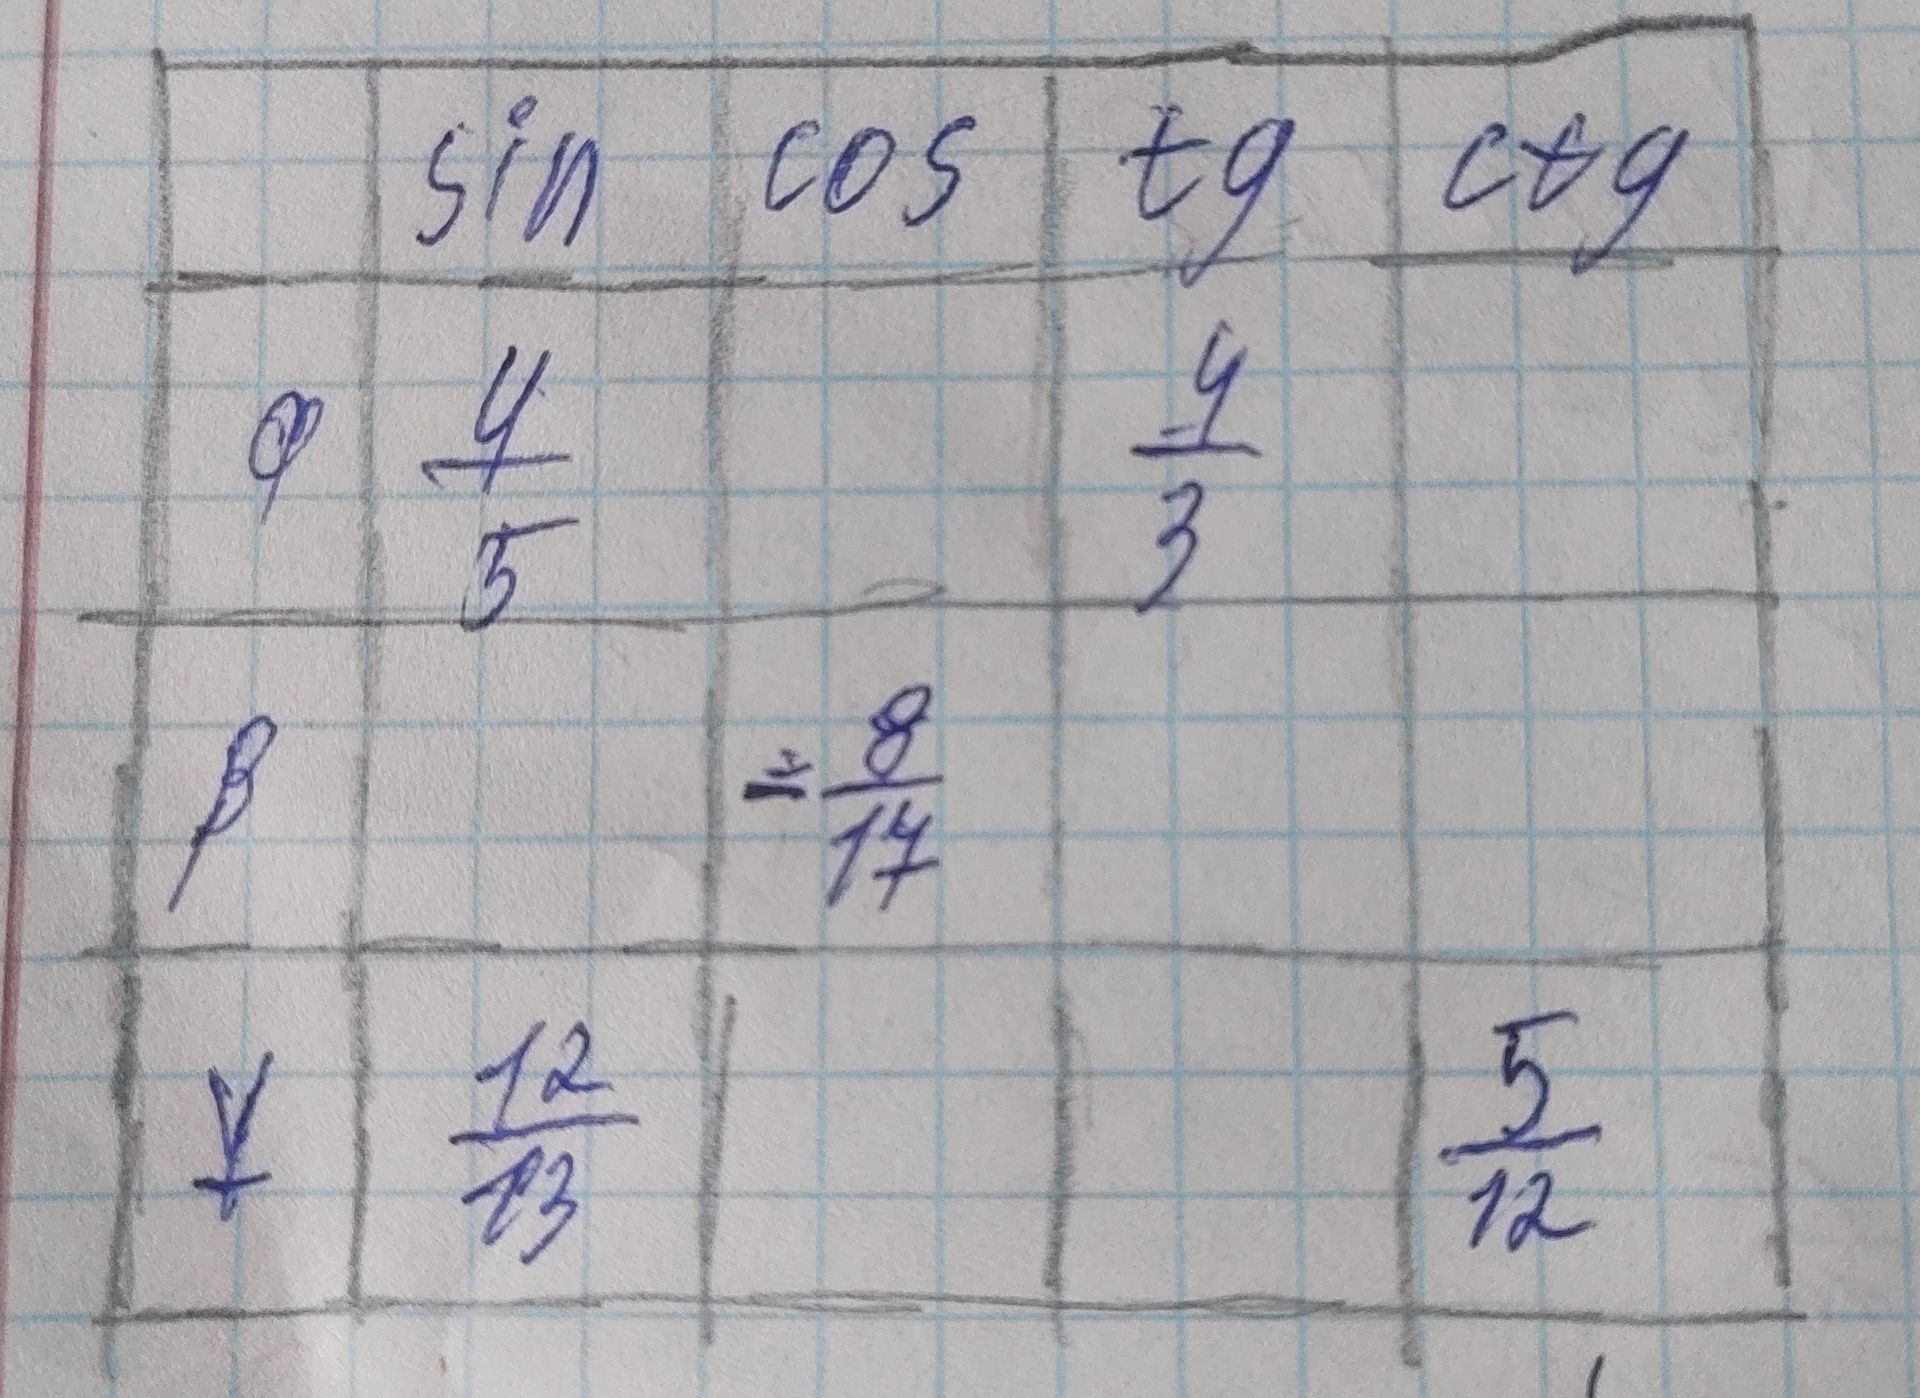 sin cos tg ctg
φ 4/5 4/3
β = 8/17
γ 12/13 5/12